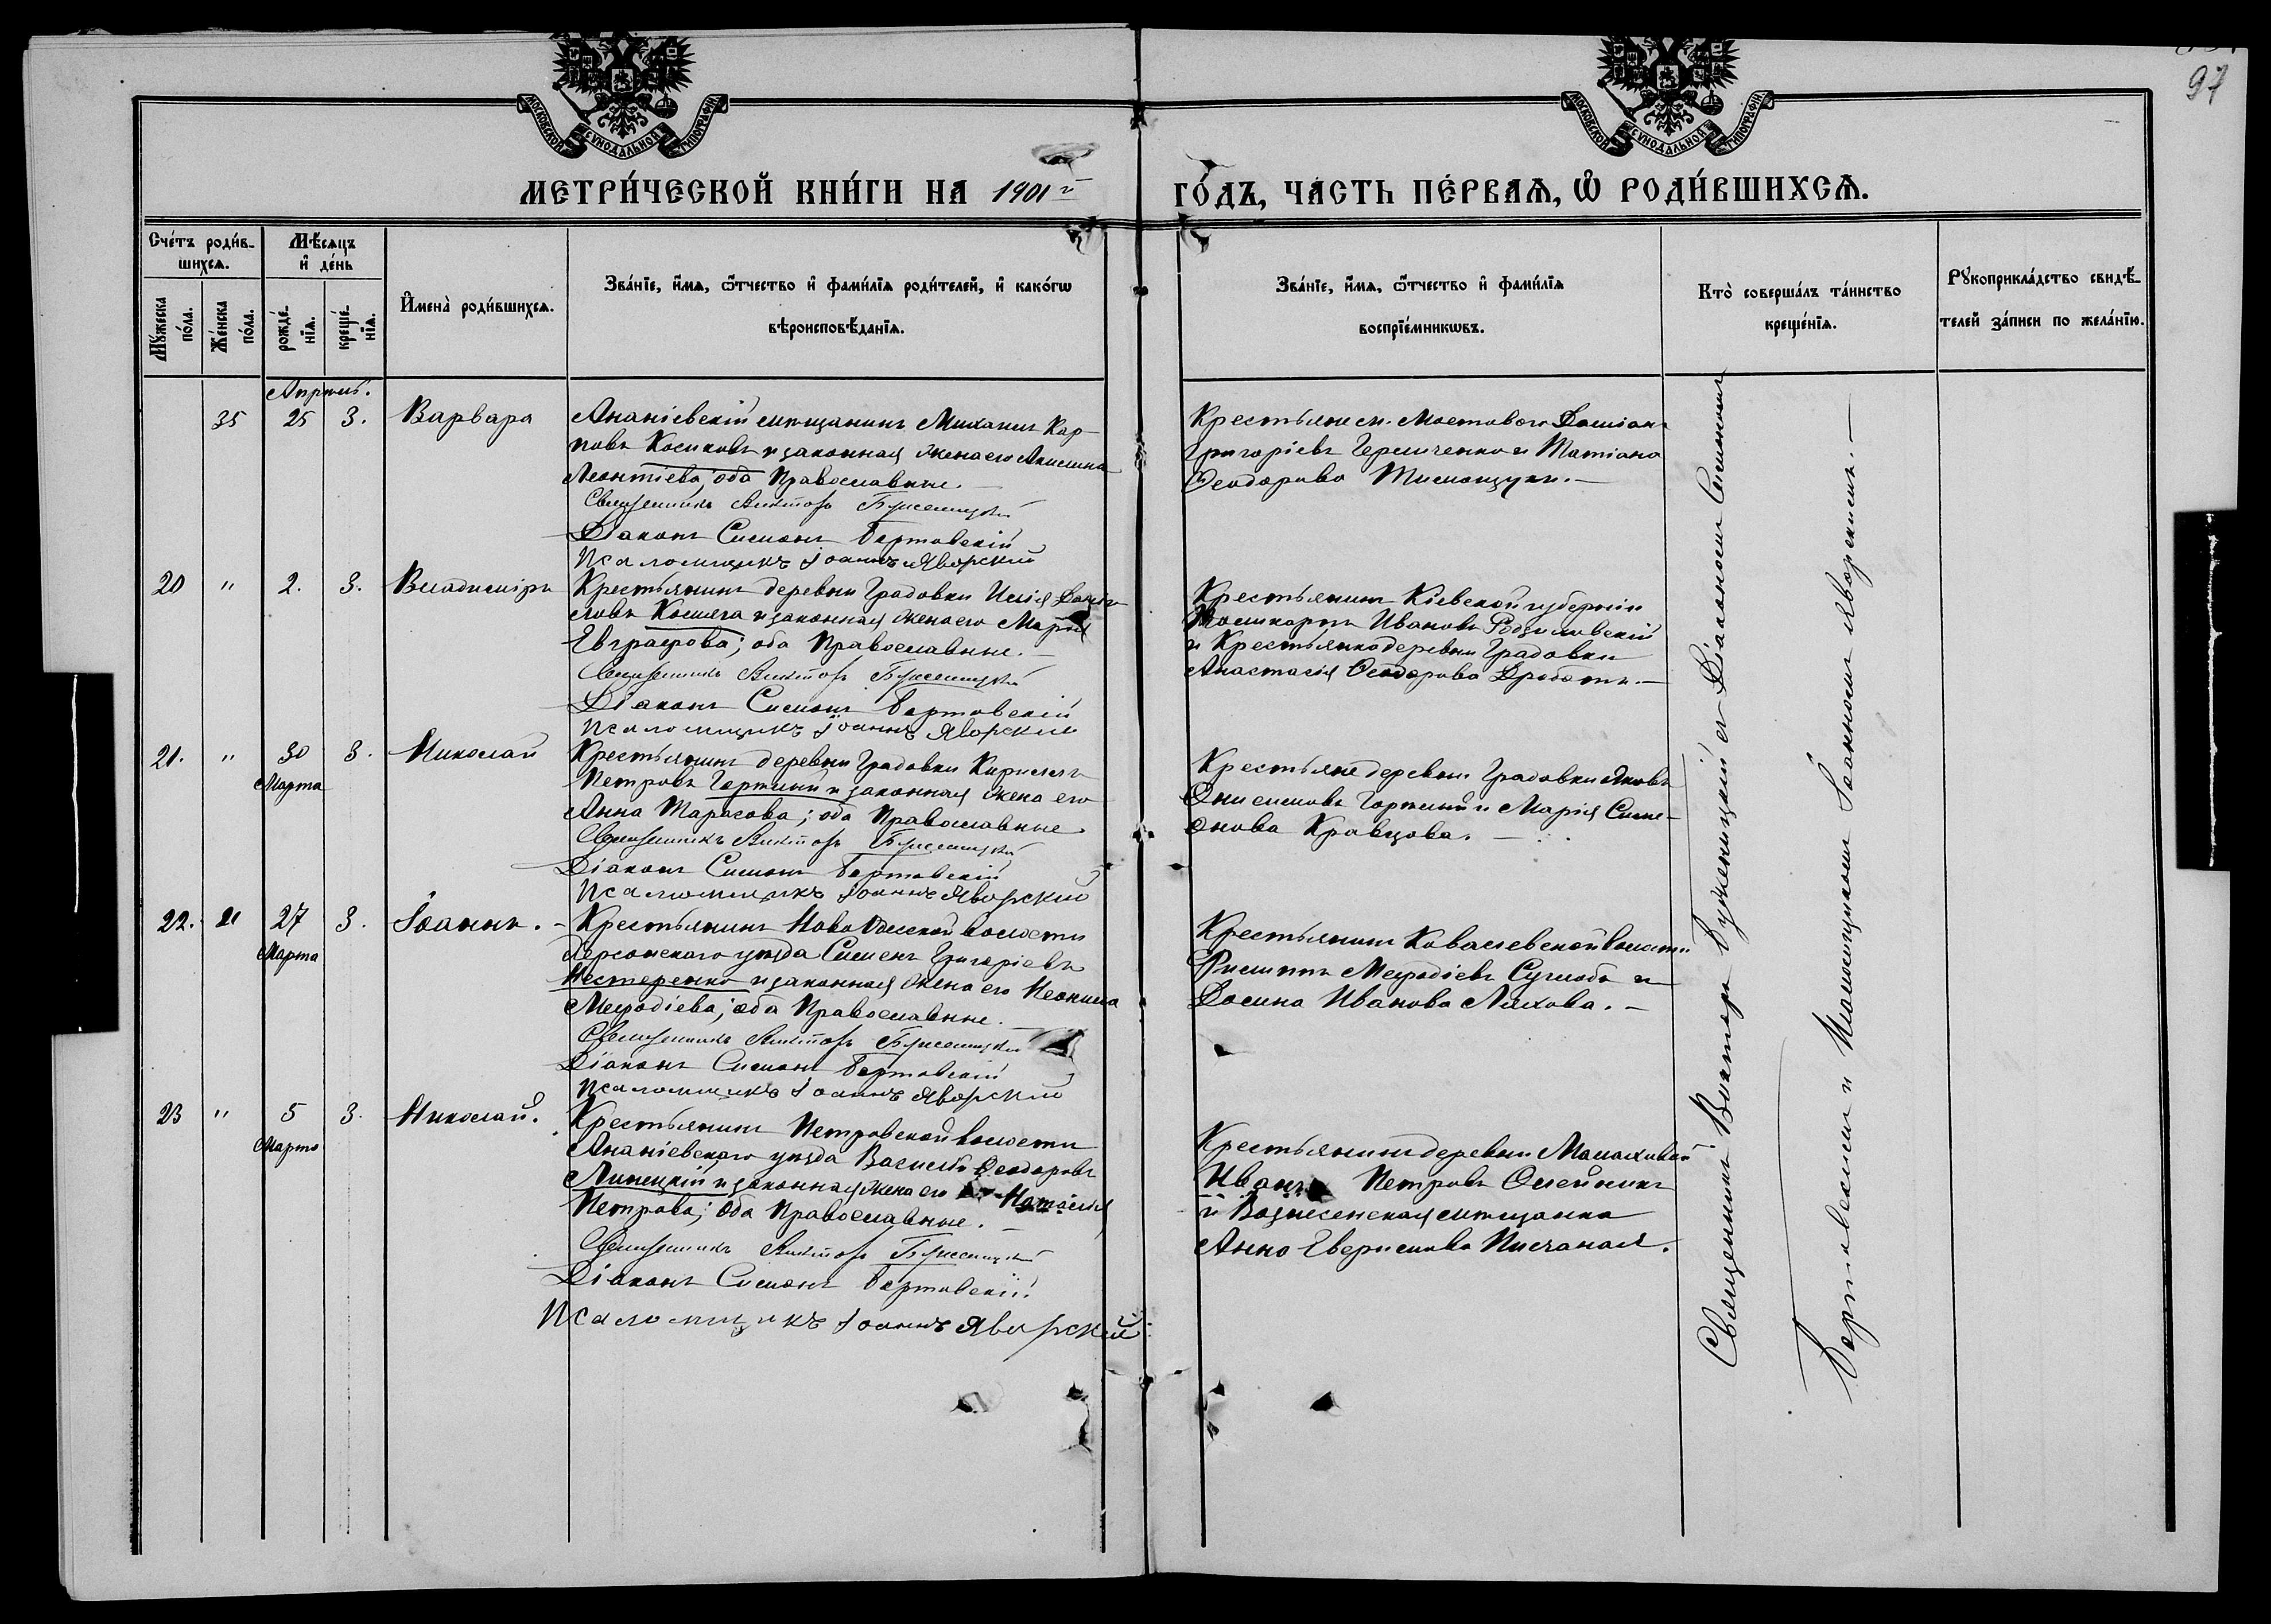 97
МОСКОВСКОЙ СѴНОДАЛЬНОЙ ТИПОГРАФІИ
МОСКОВСКОЙ СѴНОДАЛЬНОЙ ТИПОГРАФІИ
МЕТРИ́ЧЕСКОЙ КНИ́ГИ НА 1901й ГО́ДЪ, ЧА́СТЬ ПЕ́РВАѦ, Ѿ РОДИ́ВШИХСѦ.
Сче́тъ роди́в-
шихсѧ.
Мꙋ́жеска
по́ла.
Же́нска
по́ла.
Мѣ́сѧцъ
и҆ де́нь
рожде́-
нїѧ.
креще́-
нїѧ.
И҆мена̀ роди́вшихсѧ.
Зва́нїе, и҆́мѧ, ѻ҆́тчество и҆ фами́лїѧ роди́телей, и҆ како́гѡ
вѣроисповѣ́данїѧ.
Зва́нїе, и҆́мѧ, ѻ҆́тчество и҆ фами́лїѧ
воспрїе́мникѡвъ.
Кто̀ соверша́лъ та́инство
креще́нїѧ.
Рꙋкоприкла́дство свидѣ́-
телей за́писи по жела́нїю.
Апрѣль.
35 25 3. Варвара
Ананіевскій мѣщанинъ Михаилъ Кар-
повъ Косиковъ и законная жена его Акилина
Леонтіева; оба Православные.
Священникъ Викторъ Буженицкій
Діаконъ Симеонъ Бортовскій
Псаломщикъ Іоаннъ Яворскій
Крестьяне м. Мостового Даміанъ
Григоріевъ Геращенко и Татіана
Ѳеодорова Тимощукъ.
20 " 2. 3. Владиміръ
Крестьянинъ деревни Градовки Илія Дани-
ловъ Косяга и законная жена его Марія
Евграфова; оба Православные.
Священникъ Викторъ Буженицкій
Діаконъ Симеонъ Бортовскій
Псаломщикъ Іоаннъ Яворскій
Крестьянинъ Кіевской губерніи
Поликарпъ Ивановъ Родзиловскій
и Крестьянка деревни Градовки
Анастасія Ѳеодорова Дроботь.
21. " 30 3. Николай
Марта
Крестьянинъ деревни Градовки Кириллъ
Петровъ Гортый и законная жена его
Анна Тарасова; оба Православные
Священникъ Викторъ Буженицкій
Діаконъ Симеонъ Бортовскій
Псаломщикъ Іоаннъ Яворскій
Крестьяне деревни Градовки Яковъ
Онисимовъ Гортый и Марія Симе-
онова Кравцова.
22. " 27 3. Іоаннъ.
Марта
Крестьянинъ Ново Одесской волости
Херсонскаго уѣзда Симеонъ Григоріевъ
Нестеренко и законная жена его Неонила
Меѳодіева; оба Православные.
Священникъ Викторъ Буженицкій
Діаконъ Симеонъ Бортовскій
Псаломщикъ Іоаннъ Яворскій
Крестьянинъ Ковалевской волости
Филиппъ Меѳодіевъ Суглобъ и
Домна Иванова Ляхова.
23 " 5 3. Николай.
Марта
Крестьянинъ Петровской волости
Ананіевскаго уѣзда Василій Ѳеодоровъ
Липецкій и законная жена его Наталія
Петрова; оба Православные.
Священникъ Викторъ Буженицкій
Діаконъ Симеонъ Бортовскій
Псаломщикъ Іоаннъ Яворскій
Крестьянинъ деревни Малаховой
Иванъ Петровъ Олейникъ
и Вознесенская мѣщанка
Анна Писчаная.
Священникъ Викторъ Буженицкій съ Діакономъ Симеономъ
Бортовскимъ и Псаломщикомъ Іоанномъ Яворскимъ.